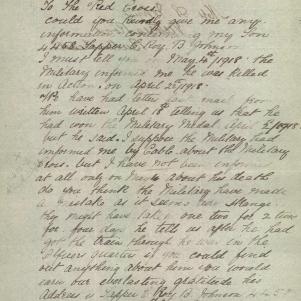 To The Red Cross
could you kindly give me any
information concerning my Son
4453 Sapper Roy. B. Johnson
I must tell you on May 4th 1918. the
Military informed me he was killed
in Action on April 25th 1918.
We have had letter from
him written April 18th telling us that he
had won the Military Medal April 2nd 1918
he said. I suppose the Military had
informed me by Cable about the Military
but I have not been
at all only on May 4 about his death
do you think the Military have made
a mistake as it seems very strange.
they might have taken one two for 2 lives
for four days he tells us after he had
got the train through he was in the
Officers quarters if you could find
out anything about them you would
earn our everlasting gratitude his
Address is Sapper Roy B. Johnson 4453